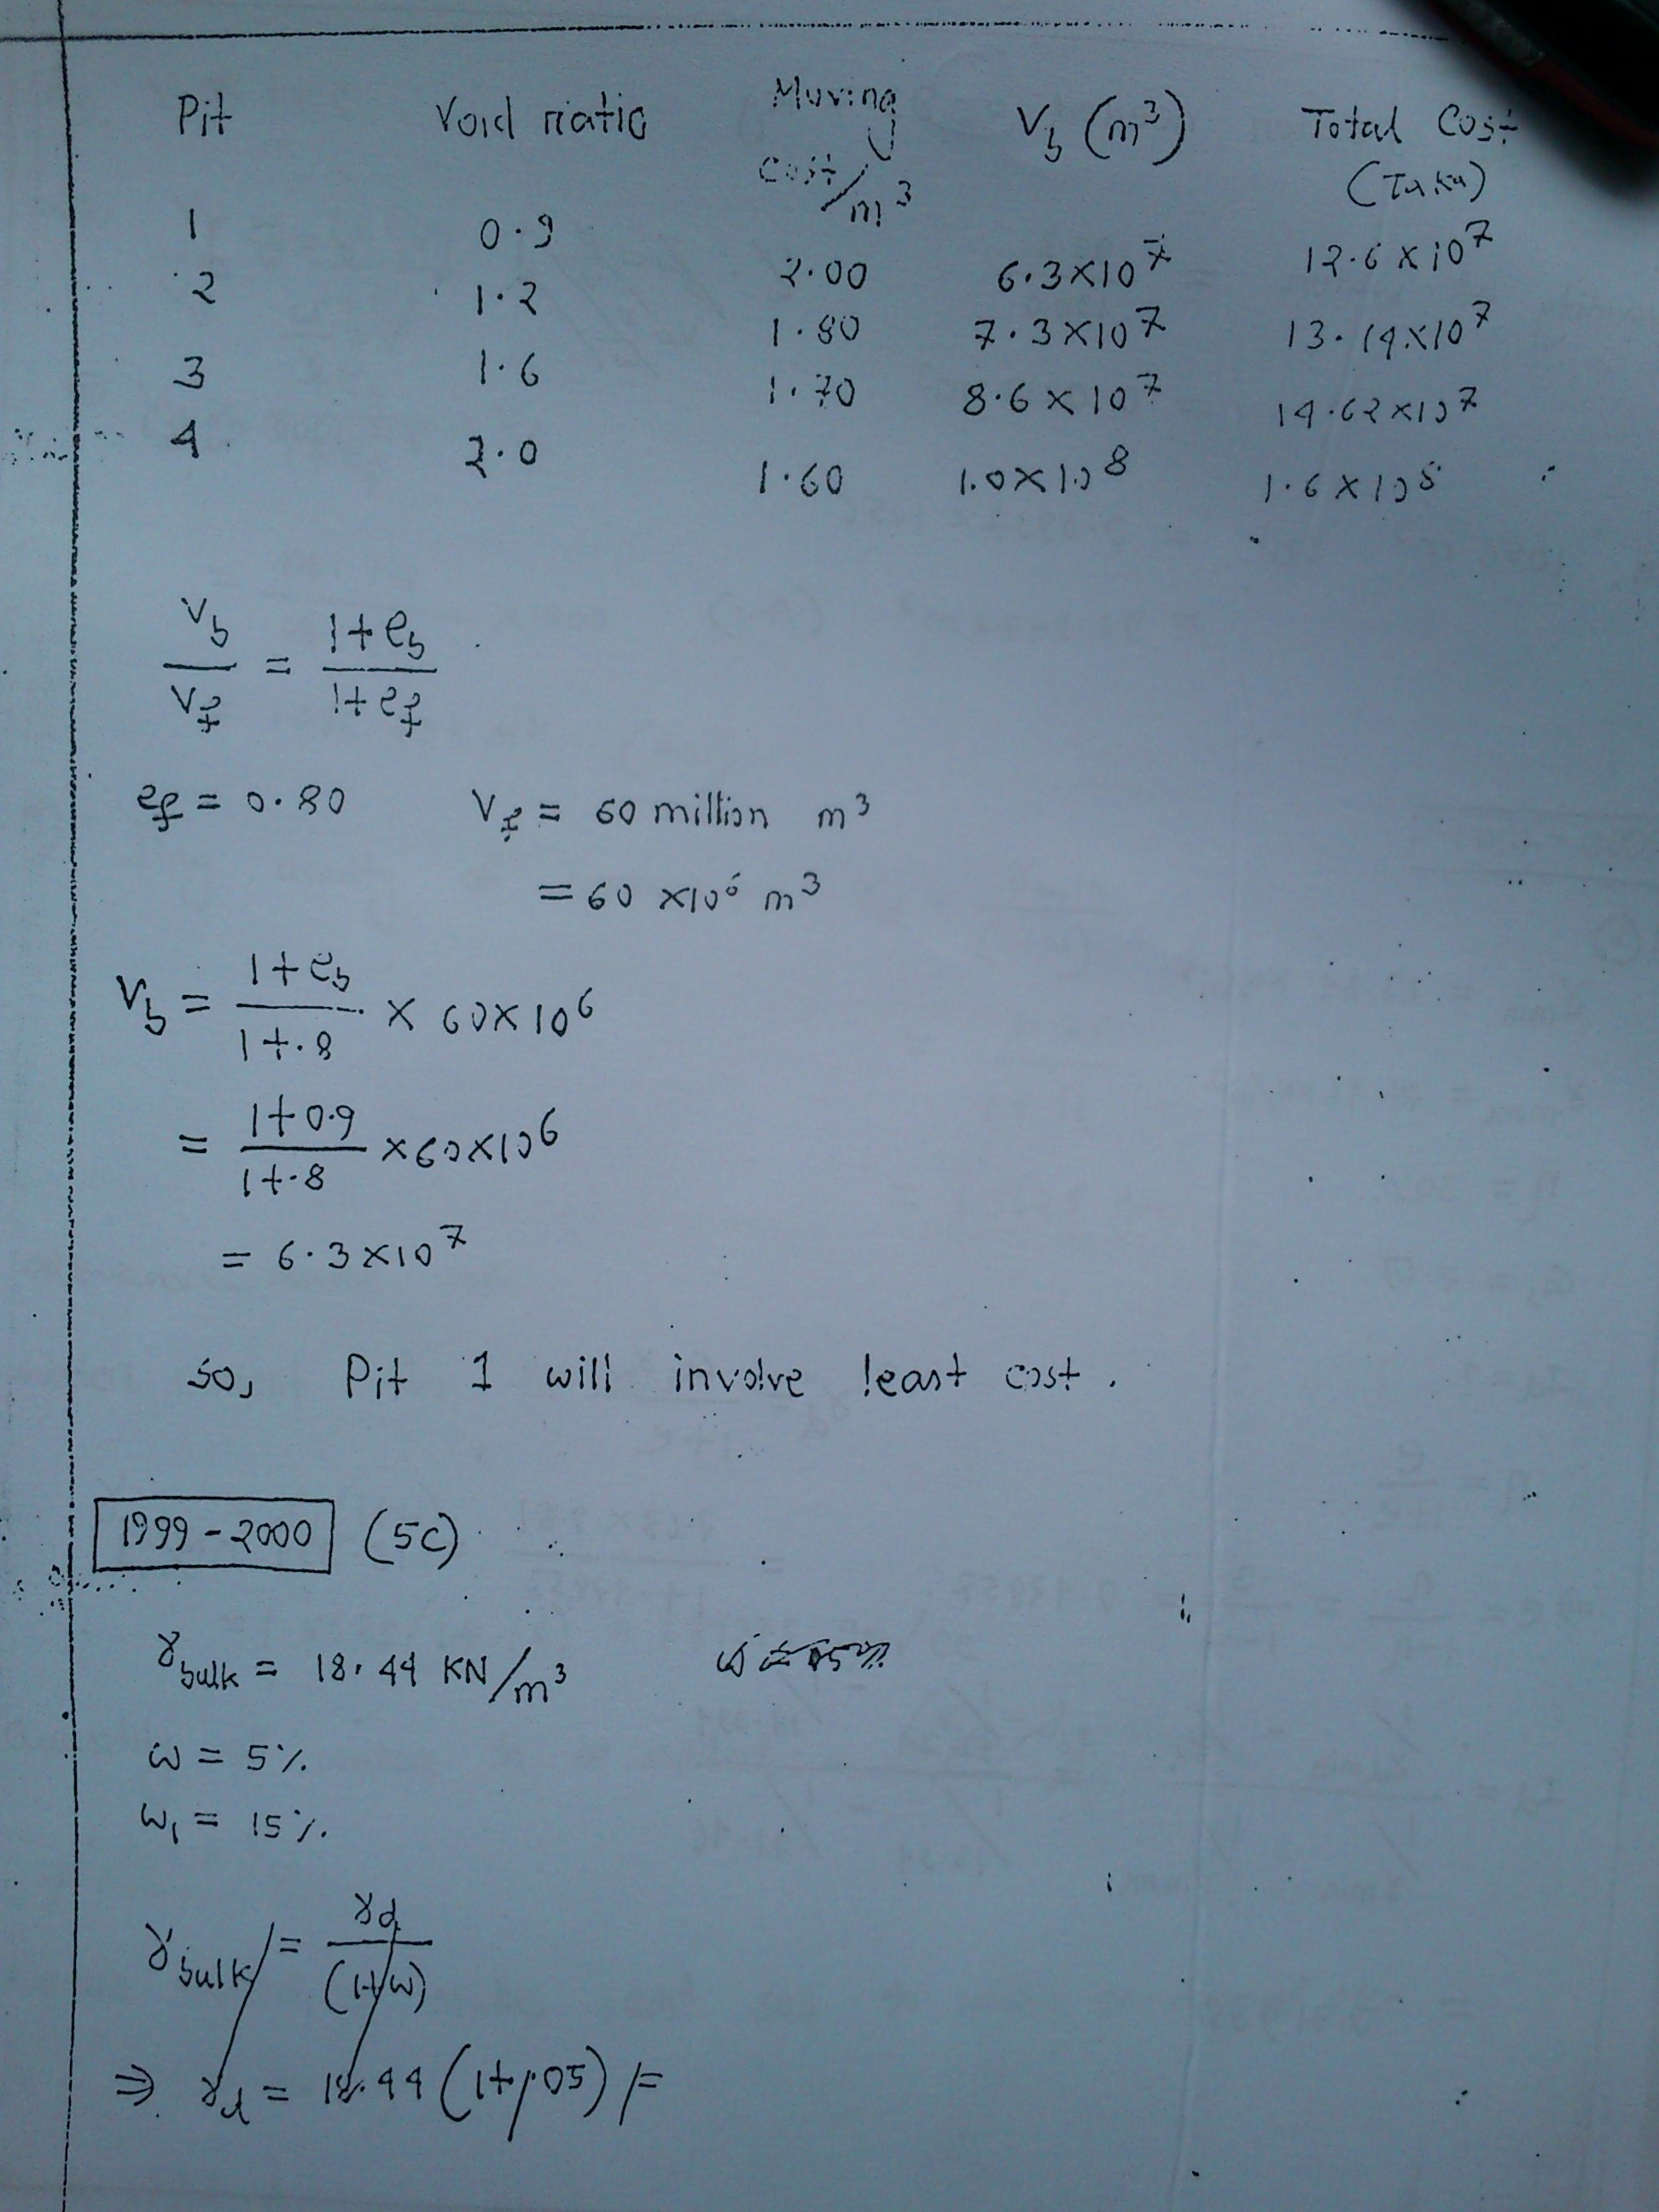 Pit Void ratio Moving Cost/m³ V_b (m³) Total Cost (Taka)
1 0.9 2.00 6.3×10⁷ 12.6×10⁷
2 1.2 1.80 7.3×10⁷ 13.14×10⁷
3 1.6 1.70 8.6×10⁷ 14.62×10⁷
4 2.0 1.60 1.0×10⁸ 1.6×10⁸
V_b/V_f = (1+e_b)/(1+e_f)
e_f = 0.80 V_f = 60 million m³
= 60 ×10⁶ m³
V_b = (1+e_b)/(1+.8) × 60×10⁶
= (1+0.9)/(1+.8) ×60×10⁶
= 6.3×10⁷
So, Pit 1 will involve least cost.
1999-2000 (5C)
γ_bulk = 18.44 KN/m³
ω = 5%
ω₁ = 15%
γ_bulk = γ_d/(1+ω)
⇒ γ_d = 18.44 (1+.05) =